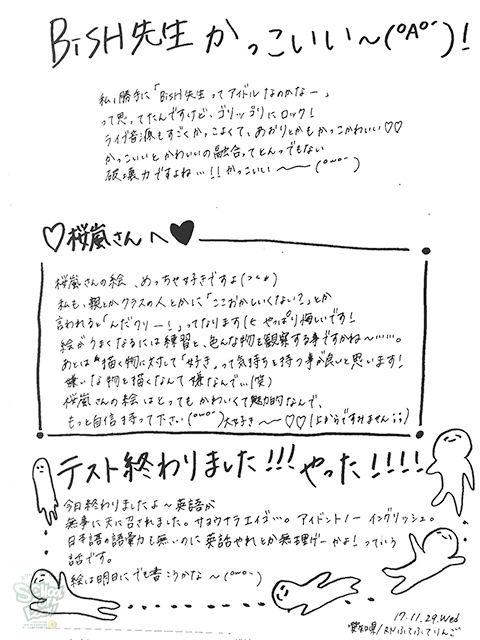 BiSH先生かっこいい〜(ºAº)!
私、勝手に「BiSH先生ってアイドルなのかなー」
って思ってたんですけど、ゴリッゴリにロック!
ライブ音源もすごくかっこよくて、あおりとかもかっこかわいい♡♡
かっこいいとかわいいの融合ってとんでもない
破壊力ですよね…!!かっこいい〜〜(ºωº)
♡桜嵐さんへ♥
桜嵐さんの絵、めっちゃ好きですよ
私も、親とかクラスの人とかに「ここおかしいくない?」とか
言われると「んだクリー!」ってなります(とやっぱり悔しいです!
絵がうまくなるには練習と、色んな物を観察する事ですかね〜……。
あとは描く物に対して「好き」って気持ちを持つ事が良いと思います!
嫌いな物を描くなんて嫌なんで…(笑)
桜嵐さんの絵はとってもかわいくて魅力的なんで、
もっと自信持って下さい(ºωº)大好き〜〜♡♡(上からですみません;;)
テスト終わりました!!!やった!!!!
今日終わりましたよ〜英語が
無事に天に召されました。サヨウナラエイゴ…。アイドントノーイングリッシュ。
日本語の語彙力も無いのに英語やれとか無理ゲーかよ!っていう
話です。
絵は明日にでも書こうかな〜(ºωº)
17.11.29.Wed
愛知県/RN ふてふてりんご